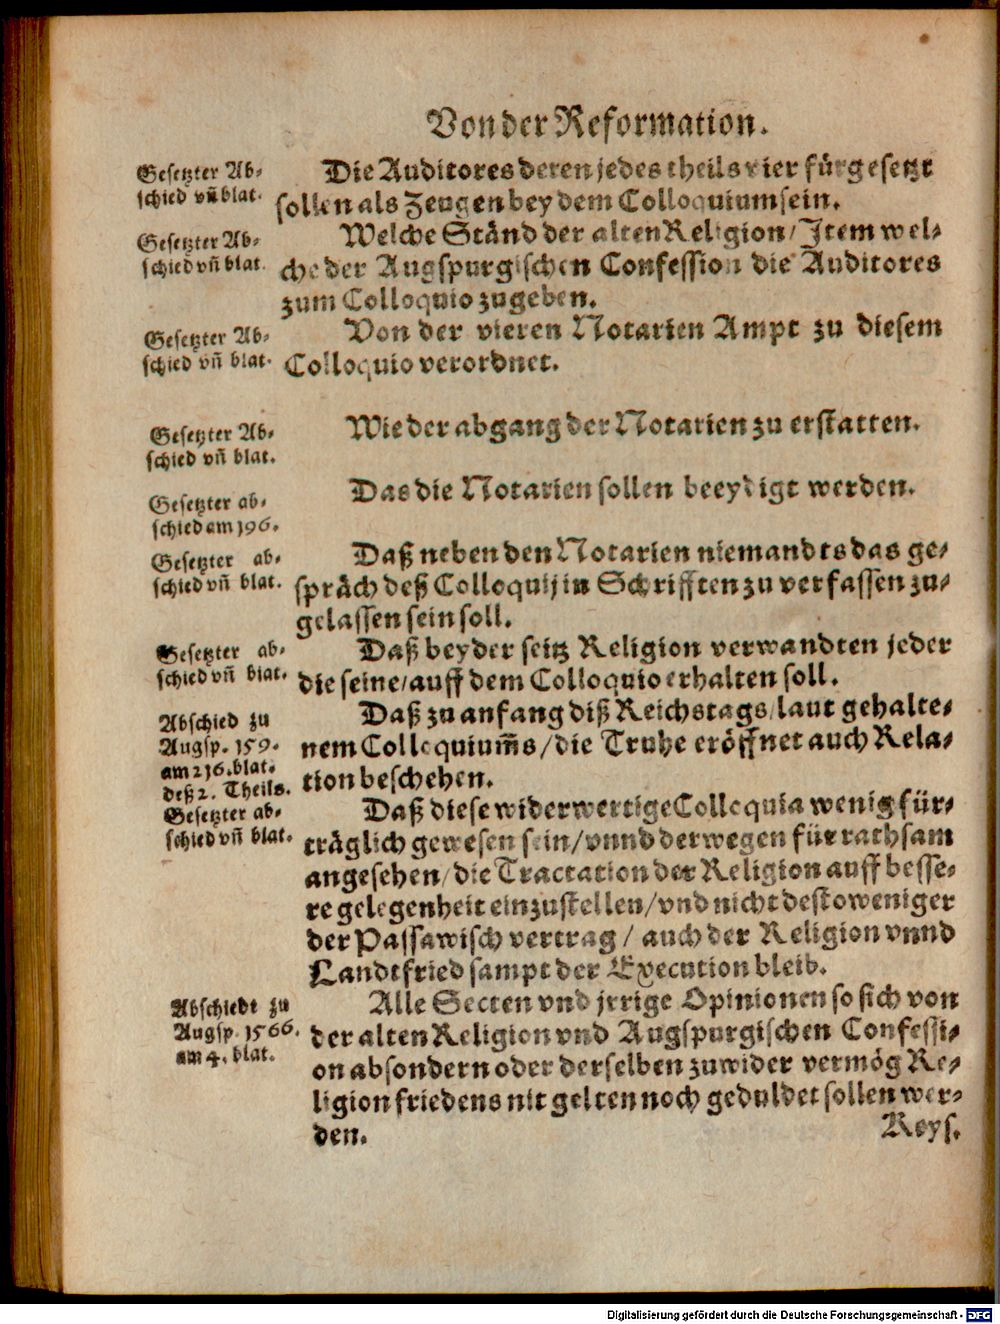 Von der Reformation.
Gesetzter Ab-
schied vñ blat.
Die Auditores deren jedes theils vier fürgesetzt
sollen als Zeugen bey dem Colloquium sein.
Gesetzter Ab-
schied vñ blat.
Welche Ständ der alten Religion/ Item wel-
che der Augspurgischen Confession die Auditores
zum Colloquio zugeben.
Gesetzter Ab-
schied vñ blat.
Von der vieren Notarien Ampt zu diesem
Colloquio verordnet.
Gesetzter Ab-
schied vñ blat.
Wie der abgang der Notarien zu erstatten.
Gesetzter ab-
schied am 196.
Das die Notarien sollen beeydigt werden.
Gesetzter ab-
schied vñ blat.
Daß neben den Notarien niemandts das ge-
spräch deß Colloquij in Schrifften zu verfassen zu-
gelassen sein soll.
Gesetzter ab-
schied vñ blat.
Daß beyder seitz Religion verwandten jeder
die seine/ auff dem Colloquio erhalten soll.
Abschied zu
Augsp. 159.
am 216. blat.
deß 2. Theils.
Daß zu anfang diß Reichstags/ laut gehalte-
nem Colloquium̃s/ die Truhe eröffnet auch Rela-
tion beschehen.
Gesetzter ab-
schied vñ blat.
Daß diese widerwertige Colloquia wenig für-
träglich gewesen sein/ vnnd derwegen für rathsam
angesehen/ die Tractation der Religion auff besse-
re gelegenheit einzustellen/ vnd nicht destoweniger
der Passawisch vertrag/ auch der Religion vnnd
Landtfried sampt der Execution bleib.
Abschiedt zu
Augsp. 1566.
am 4. blat.
Alle Secten vnd jrrige Opinionen so sich von
der alten Religion vnd Augspurgischen Confessi-
on absondern oder derselben zuwider vermög Re-
ligion friedens nit gelten noch geduldet sollen wer-
den.
Reys.
Digitalisierung gefördert durch die Deutsche Forschungsgemeinschaft - DFG